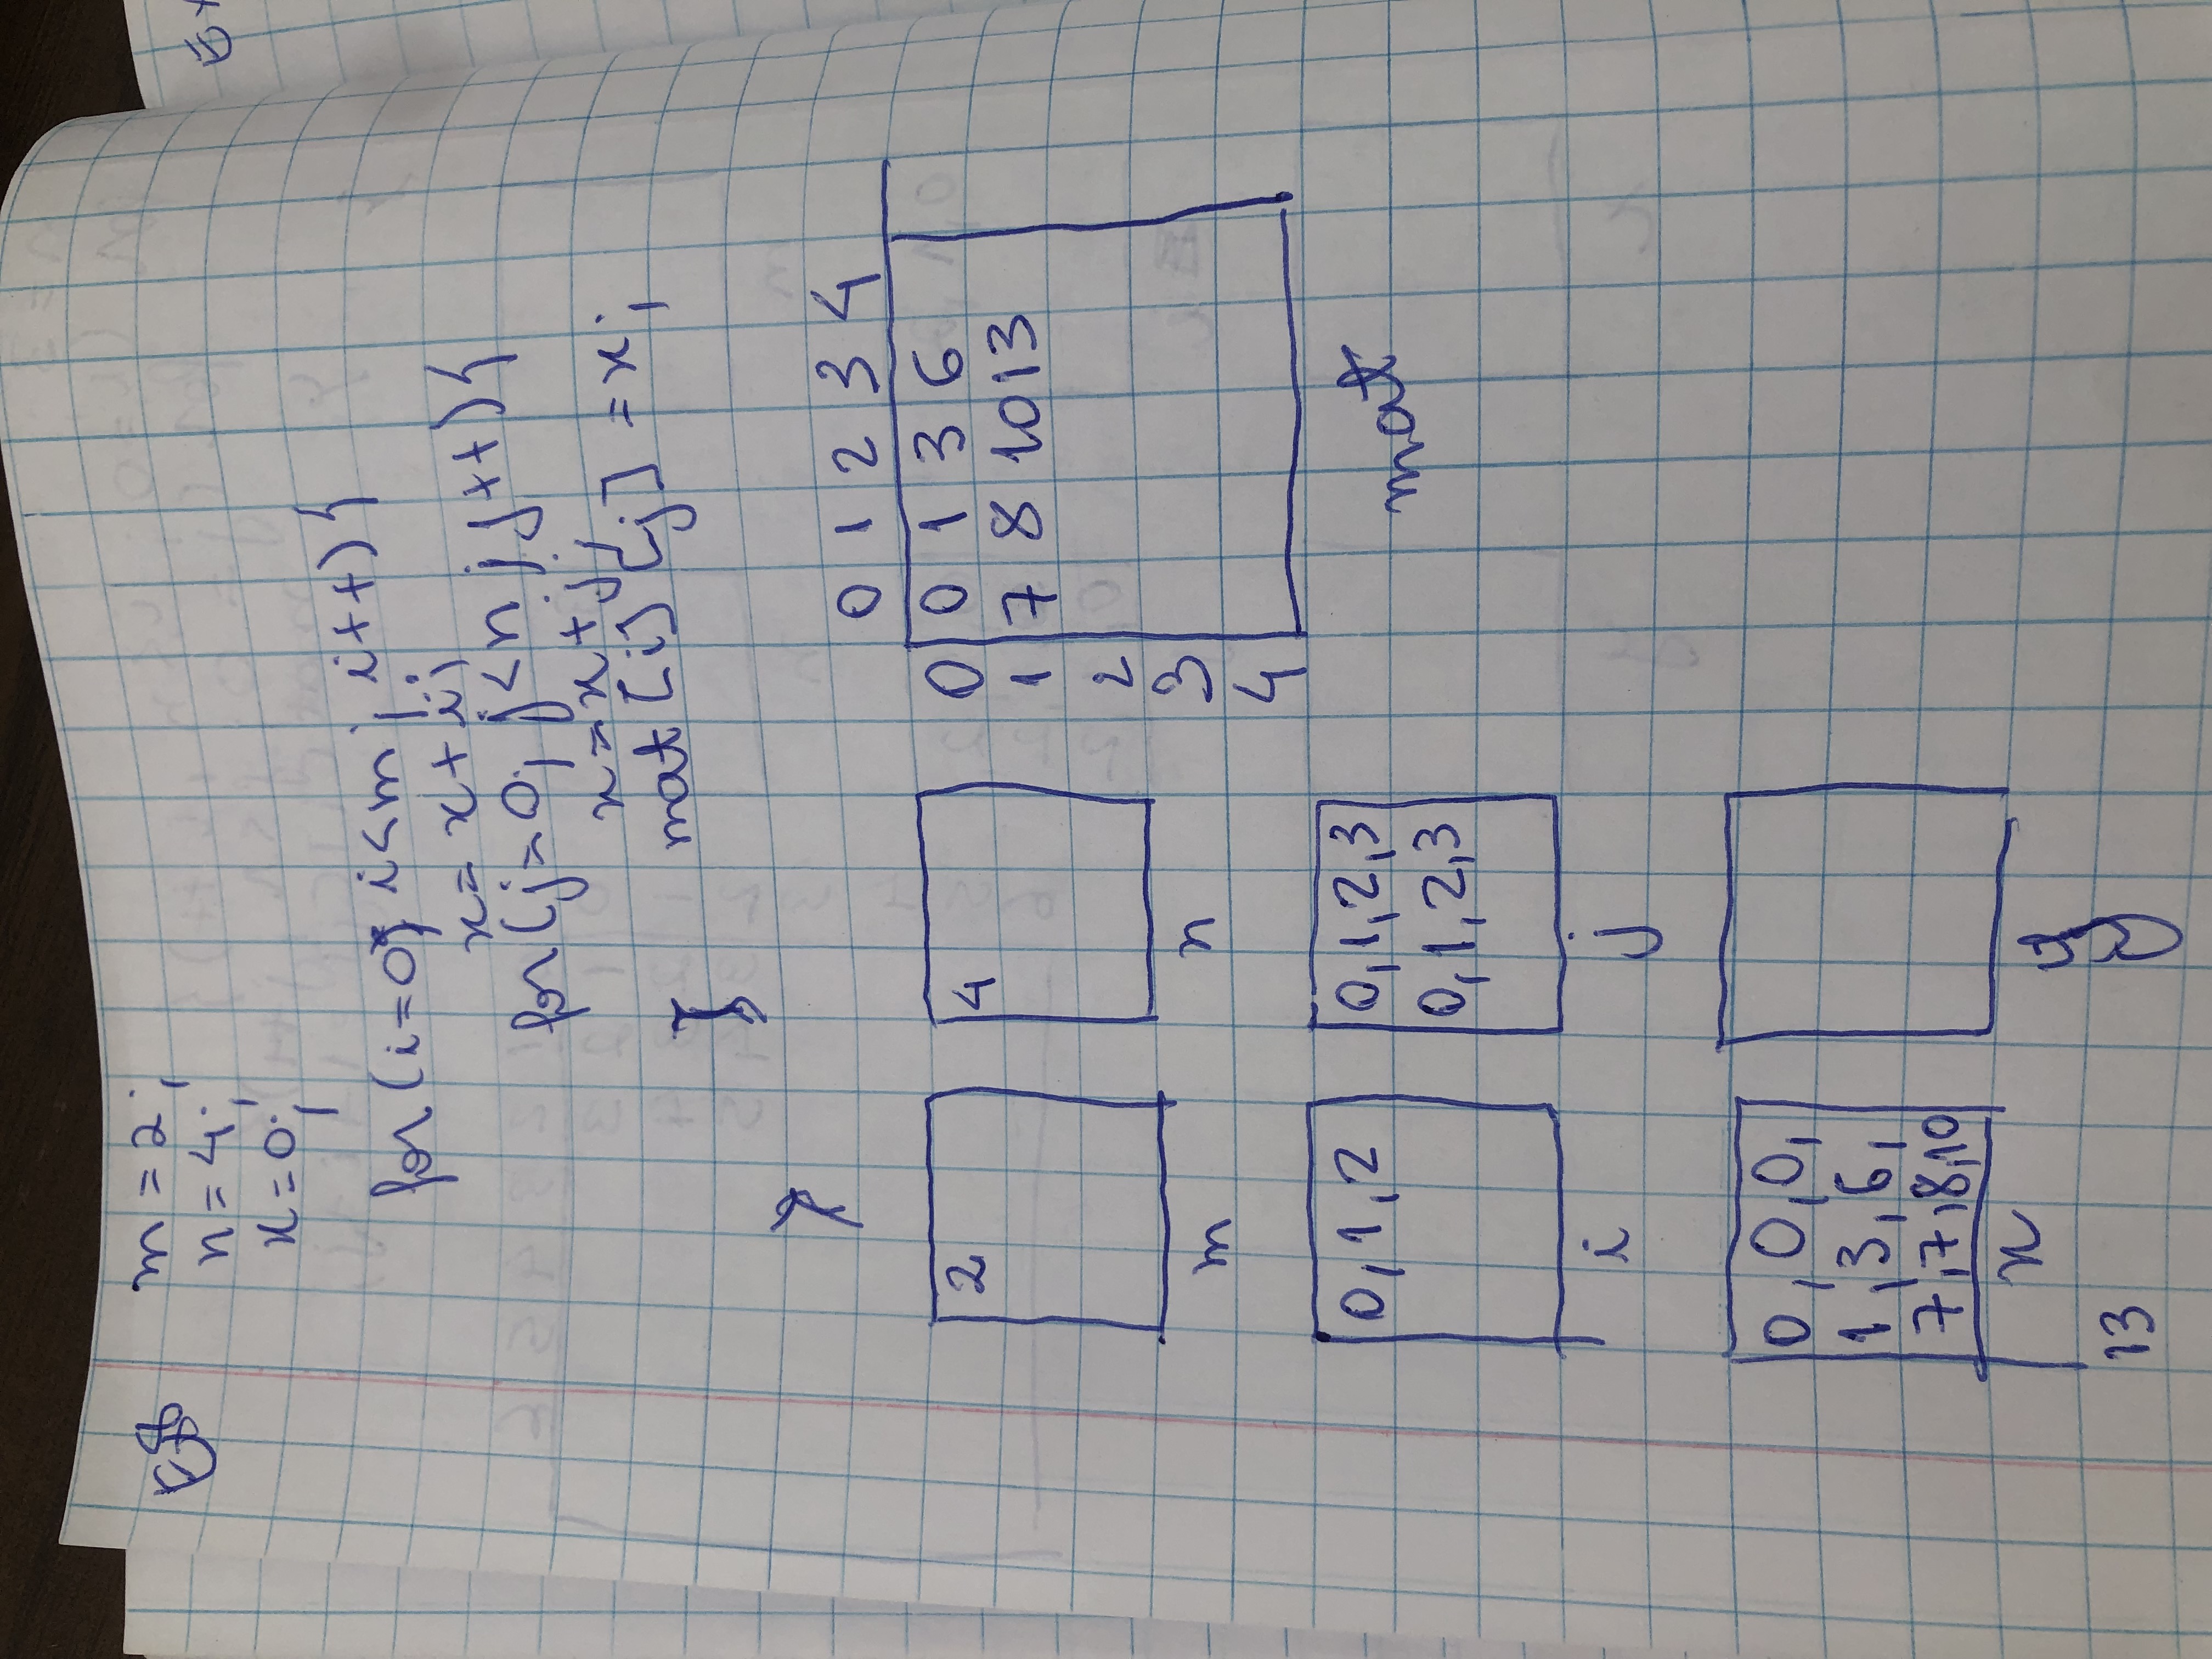 Ex8
m = 2;
n = 4;
x = 0;
for (i=0; i<m; i++) {
x = x + i;
for (j=0; j<n; j++) {
x = x + j;
mat [i] [j] = x;
}
}
0 1 2 3 4
0 0 1 3 6
1 7 8 10 13
2
3
4
mat
2
m
4
n
0, 1, 2
i
0, 1, 2, 3
0, 1, 2, 3
j
0, 0, 0,
1, 3, 6,
7, 7, 8, 10
x
13
y